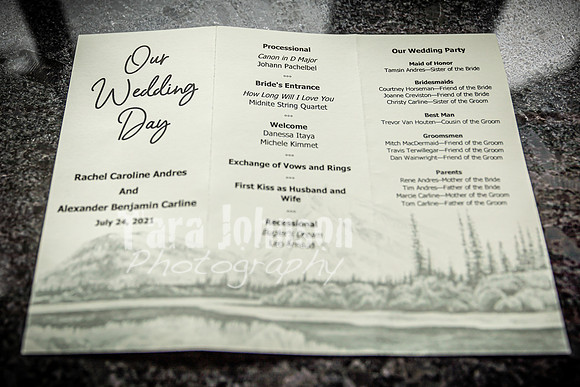 Our
Wedding
Day
Rachel Caroline Andres
And
Alexander Benjamin Carline
July 24, 2021
Processional
Canon in D Major
Johann Pachelbel
***
Bride's Entrance
How Long Will I Love You
Midnite String Quartet
***
Welcome
Danessa Itaya
Michele Kimmet
***
Exchange of Vows and Rings
***
First Kiss as Husband and
Wife
***
Recessional
Our Wedding Party
Maid of Honor
Tamsin Andres—Sister of the Bride
Bridesmaids
Courtney Horseman—Friend of the Bride
Joanne Creviston—Friend of the Bride
Christy Carline—Sister of the Groom
Best Man
Trevor Van Houten—Cousin of the Groom
Groomsmen
Mitch MacDermaid—Friend of the Groom
Travis Terwillegar—Friend of the Groom
Dan Wainwright—Friend of the Groom
Parents
Rene Andres-Mother of the Bride
Tim Andres-Father of the Bride
Marcie Carline-Mother of the Groom
Tom Carline-Father of the Groom
Tara Johnson
Photography